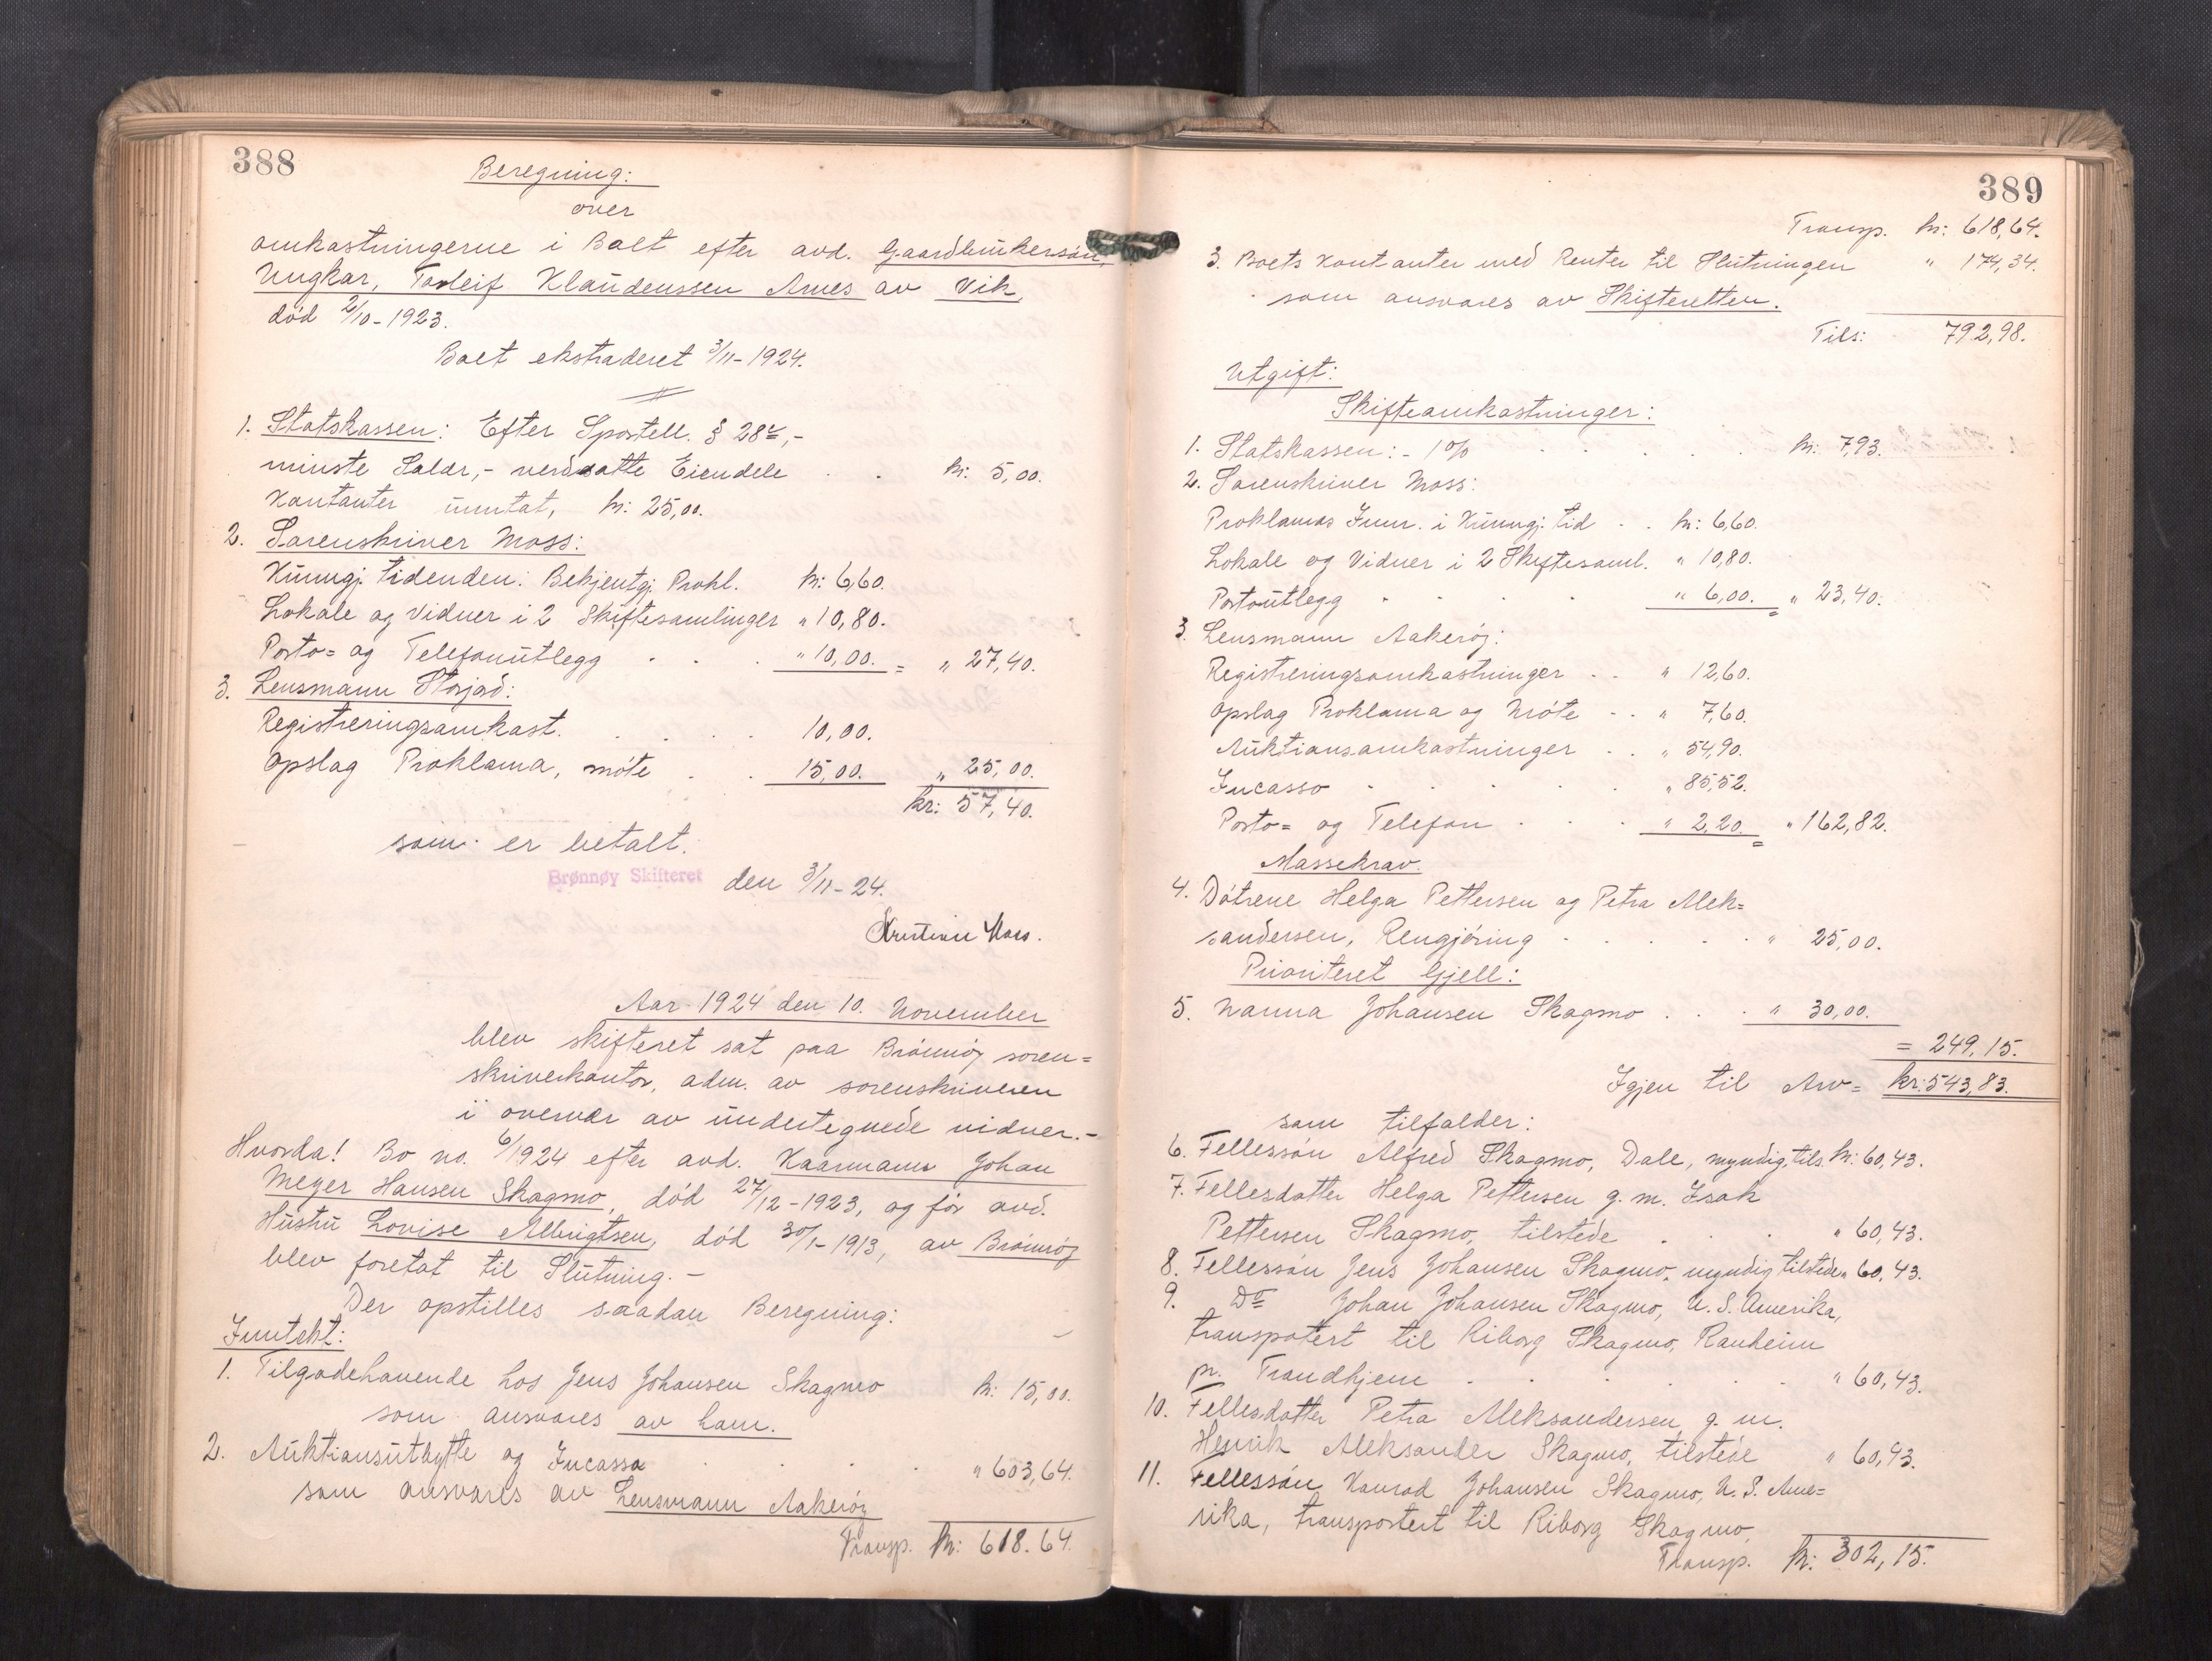 388
Beregning:
over
omkostningerne i Boet efter avd. Gaardbrukersøn,
Ungkar, Torleif Klaudenssen Arnes av Vik,
død 2/10-1923.
Boet ekstraderet 3/11-1924.
1. Statskassen: Efter Sportell. § 28
minste Salær,- verdsatte Eiendele . . kr: 5,00.
Kontanter unntat, kr: 25,00.
2. Sorenskriver Moss:
Kunngj. tidenden: Bekjentgj. Prokl. kr: 6,60.
Lokale og Vidner i 2 Skiftesamlinger " 10,80.
Porto= og Telefonutlegg . . . " 10,00. = " 27,40.
3. Lensmann Storjord:
Registreringsomkost. . . . . 10,00.
Opslag Proklama, møte . . 15,00. " 25,00.
kr: 57,40.
som er betalt.
Brønnøy Skifteret den 3/11-24.
Kristian Moss.
Aar 1924 den 10. November
blev skifteret sat paa Brønnøy soren=
skriverkontor, adm. av sorenskriveren
i overvær av undertegnede vidner.-
Hvorda! Bo no. 6/1924 efter avd. Kaarmann Johan
Meyer Hansen Skagmo, død 27/12-1923, og før avd.
Hustru Lovise Albrigtsen, død 30/1-1913, av Brønnøy
blev foretat til Slutning.-
Der opstilles saadan Beregning:
Inntekt:
1. Tilgodehavende hos Jens Johansen Skagmo kr: 15,00.
som ansvares av ham.
2. Auktionsutbytte og Incasso . . . . " 603,64.
som ansvares av Lensmann Aakerøy
Transp. kr: 618.64.
389
Transp. kr: 618,64.
3. Boets Kontanter med Renter til Slutningen " 174,34.
som ansvares av Skifteretten.
Tils: 792,98.
Utgift:
Skifteomkostninger:
1. Statskassen: - 1% . . . . . kr: 7,93.
2. Sorenskriver Moss:
Proklamas Innr. i Kunngj. tid . . kr: 6,60.
Lokale og Vidner i 2 Skiftesaml. " 10,80.
Portoutlegg . . . . " 6,00. = " 23,40.
3. Lensmann Aakerøy:
Registreringsomkostninger . . " 12,60.
Opslag Proklama og Møte . . " 7,60.
Auktionsomkostninger . . " 54,90.
Incasso . . . . . " 85,52.
Porto= og Telefon . . . " 2,20. = " 162,82.
Massekrav.
4. Døtrene Helga Pettersen og Petra Alek=
sandersen, Rengjøring . . . . . " 25,00.
Prioriteret Gjell:
5. Nanna Johansen Skagmo . . . " 30,00.
= 249,15.
Igjen til Arv = kr: 543,83.
som tilfalder:
6. Fellessøn Alfred Skagmo, Dale, myndig, tils. kr: 60,43.
7. Fellesdatter Helga Pettersen g. m. Isak
Pettersen Skagmo, tilstede . . . " 60,43.
8. Fellessøn Jens Johansen Skagmo, myndig tilstede " 60,43.
9. Do Johan Johansen Skagmo, U. S. Amerika,
transpotert til Riborg Skagmo, Ranheim
pr. Trondhjem . . . . . . " 60,43.
10. Fellesdatter Petra Aleksandersen g. m.
Henrik Aleksander Skagmo, tilstede " 60,43.
11. Fellessøn Konrad Johansen Skagmo, U. S. Ame=
rika, transportert til Riborg Skagmo,
Transp. kr: 302,15.